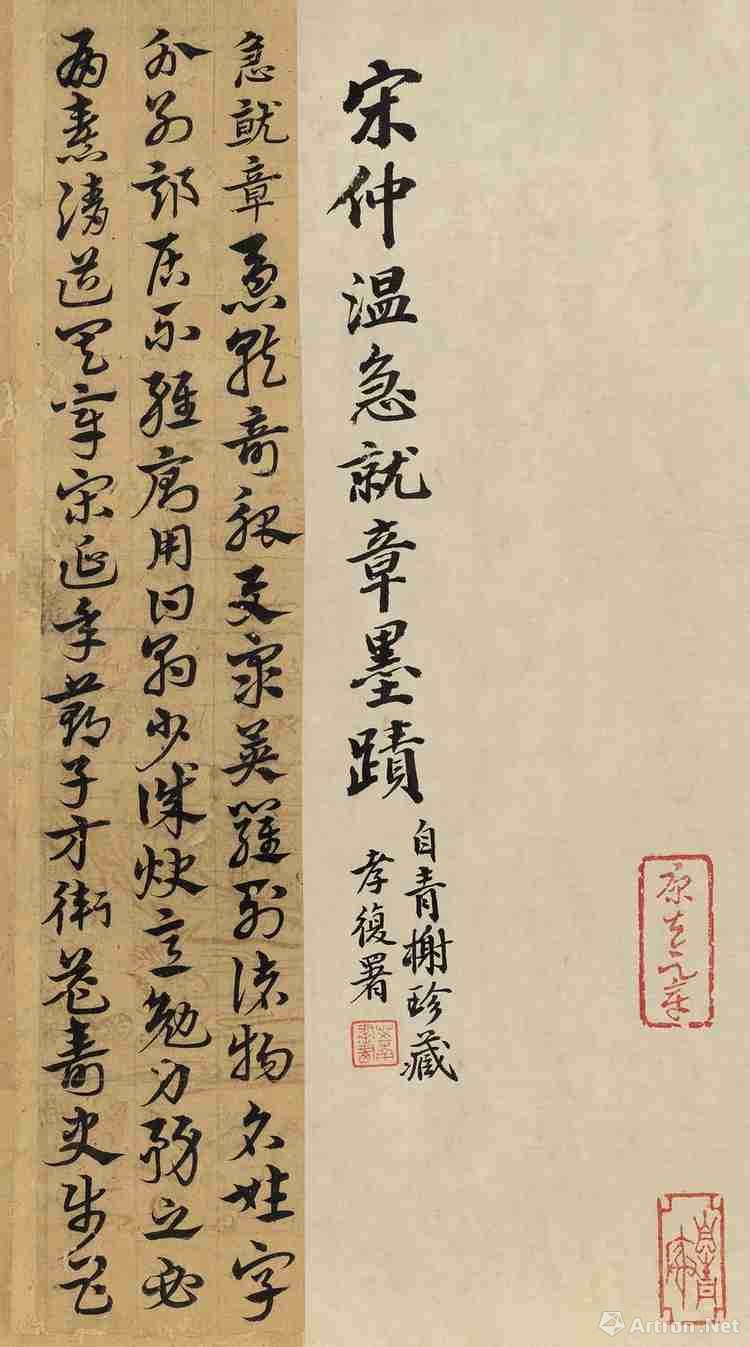 宋仲温急就章墨蹟
自青榭珍藏
孝復署
急就章急就奇觚與衆異羅列諸物名姓字
分別部居不雜廁用日約少誠快意勉力務之必
有憙請道其章宋延年鄭子方衛益壽史步昌
Artron.Net